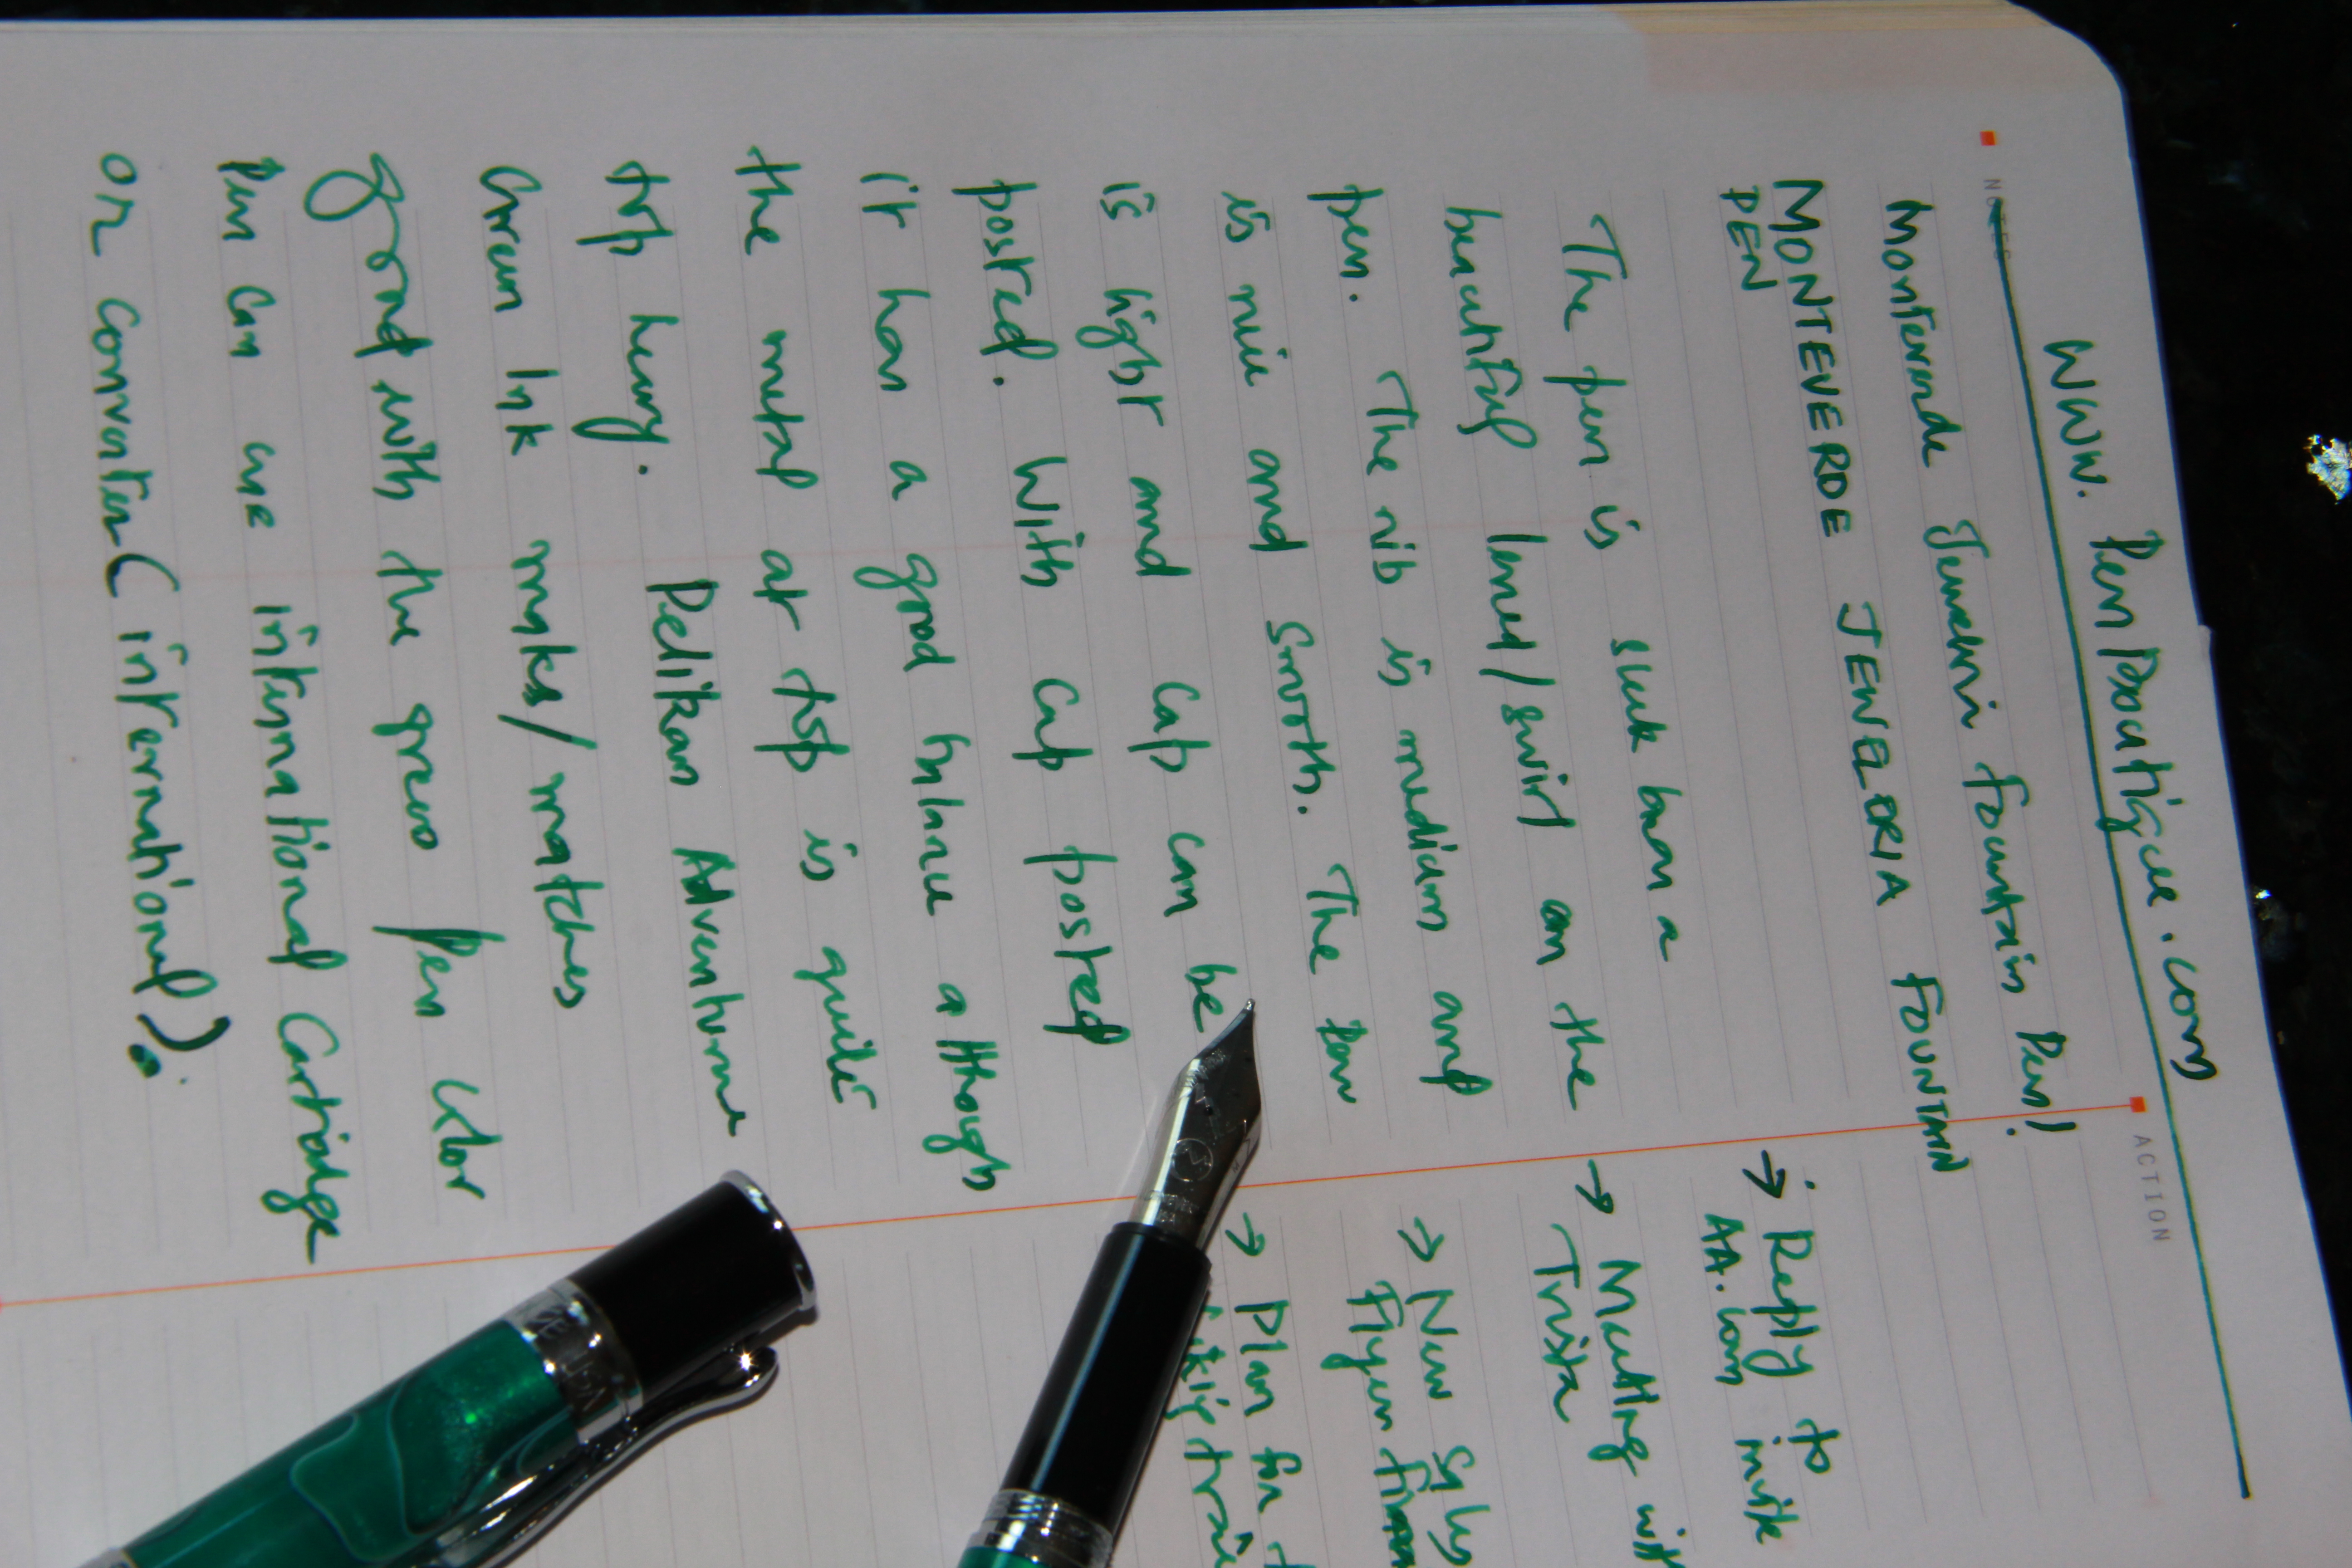 www. PenBoutique.com
NOTES
Monteverde Jewelria Fountain Pen!
MONTEVERDE JEWELRIA FOUNTAIN
PEN
The pen is sleek has a
beautiful laned/swirl on the
pen. The nib is medium and
is nice and smooth. The pen
is light and cap can be
posted. With cap posted
it has a good balance although
the metal at top is quite
top heavy. Pelikan Adventurine
Green Ink makes/matches
good with the green pen color
Pen can use international Cartridge
or converter (international).
ACTION
→ Reply to
AA.com invite
→ Meeting with
Trista
→ New
Flyer
→ Plan for